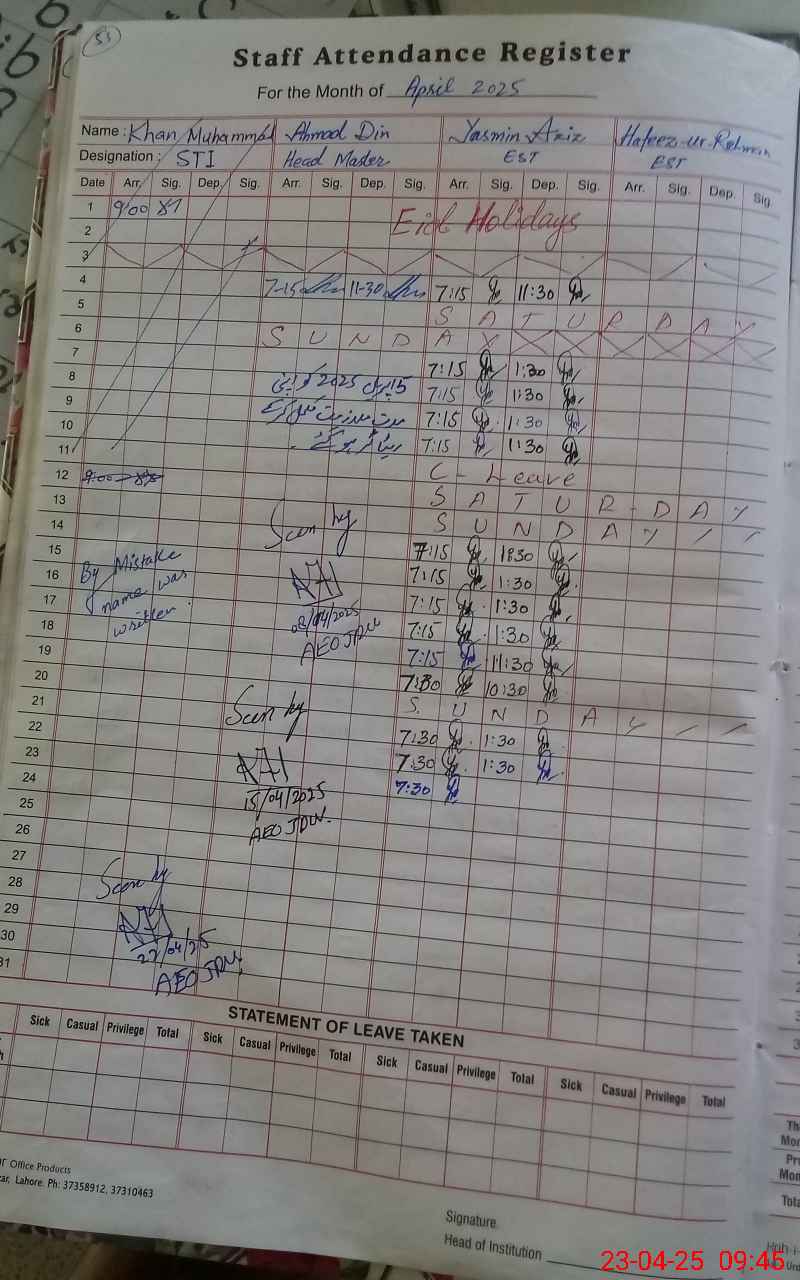 53
Staff Attendance Register
For the Month of April 2025
Name: Khan Muhammad Ahmad Din Yasmin Aziz Hafeez-ur-Rehman
Designation: STI Head Master EST EST
Date Arr. Sig. Dep. Sig. Arr. Sig. Dep. Sig. Arr. Sig. Dep. Sig. Arr. Sig. Dep. Sig.
1 9:00
2 Eid Holidays
3
4 7-15 11-30 7:15 11:30
5 S A T U R D A Y
6 S U N D A Y
7 7:15 1:30
8 15 اپریل 2025 7:15 1:30
9 7:15 1:30
10 7:15 11:30
11 C - Leave
12 9:00 S A T U R - D A Y
13 S U N D A Y
14 Seen by 7:15 1:30
15 7:15 1:30
16 By Mistake 7:15 1:30
17 name was 08/04/2025 7:15 1:30
18 written. AEO JDW 7:15 11:30
19 7:30 10:30
20 Seen by S U N D A Y
21 7:30 1:30
22 7:30 1:30
23 15/04/2025 7:30
24 AEO JDW.
25
26
27 Seen by
28
29
30 22/04/25
31 AEO JDW
STATEMENT OF LEAVE TAKEN
Sick Casual Privilege Total Sick Casual Privilege Total Sick Casual Privilege Total Sick Casual Privilege Total
Office Products
zar, Lahore. Ph: 37358912, 37310463
Signature
Head of Institution
Th
Mon
Pr
Mon
Tota
23-04-25 09:45